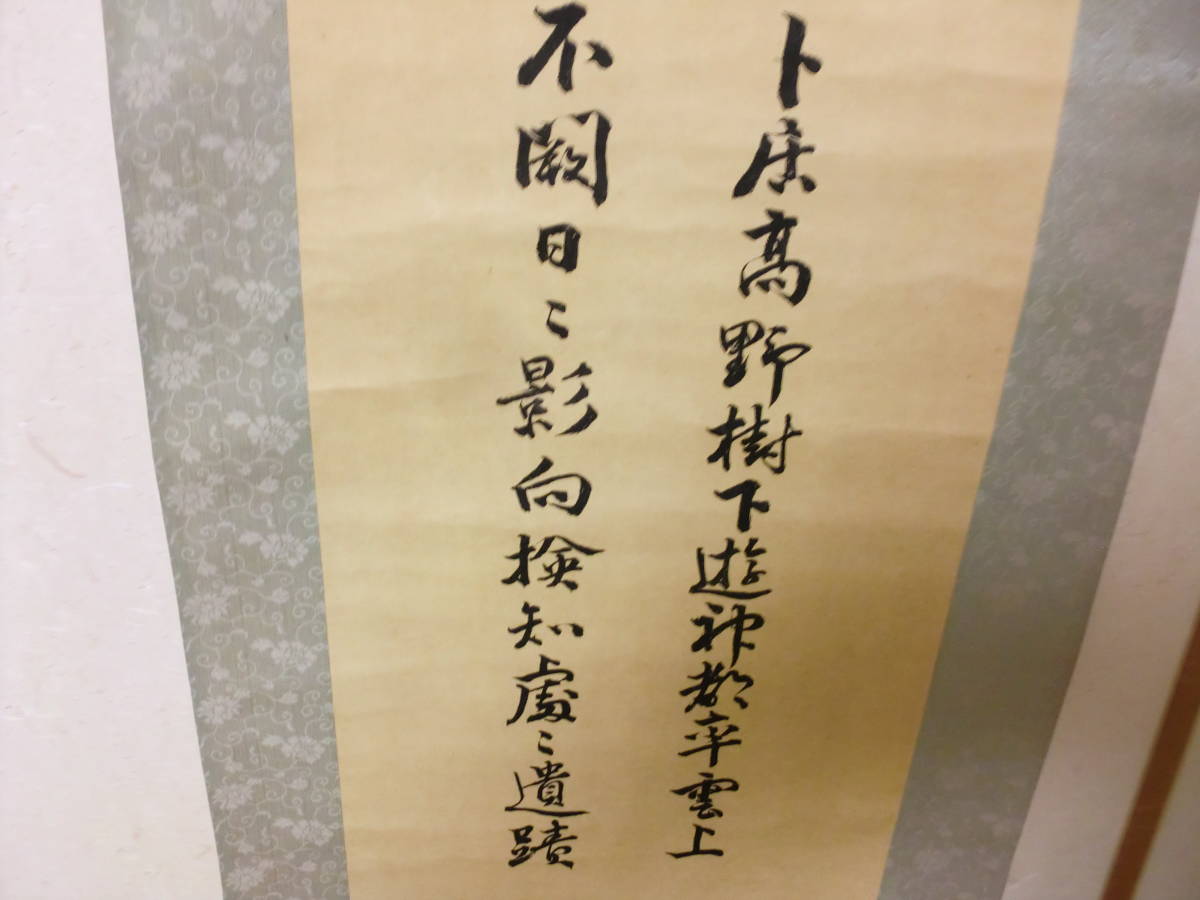 卜居高野樹下遊神都率雲上
不闕日〻影向檢知處〻遺蹟